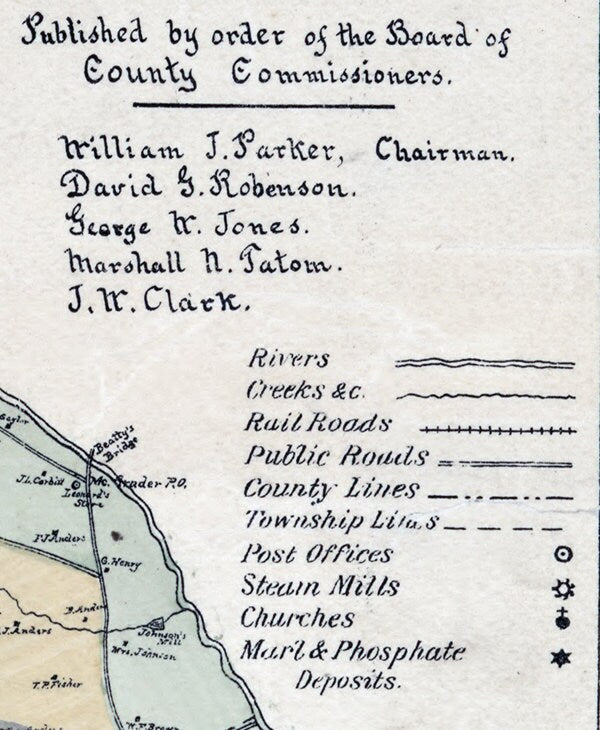 Published by order of the Board of
County Commissioners.
William J. Parker, Chairman.
David G. Robenson.
George W. Jones.
Marshall N. Tatom.
J. W. Clark.
Rivers
Creeks &c.
Rail Roads
Public Roads
County Lines
Township Lines
Post Offices
Steam Mills
Churches
Marl & Phosphate
Deposits.
Beatty's
Bridge
J.L. Corbitt
Mc. Grader P.O.
Leonard's
Store
P.J. Anders
G. Henry
B. Anders
J. Anders
Johnson's
Mill
Mrs. Johnson
T.P. Fisher
W.F. Brown